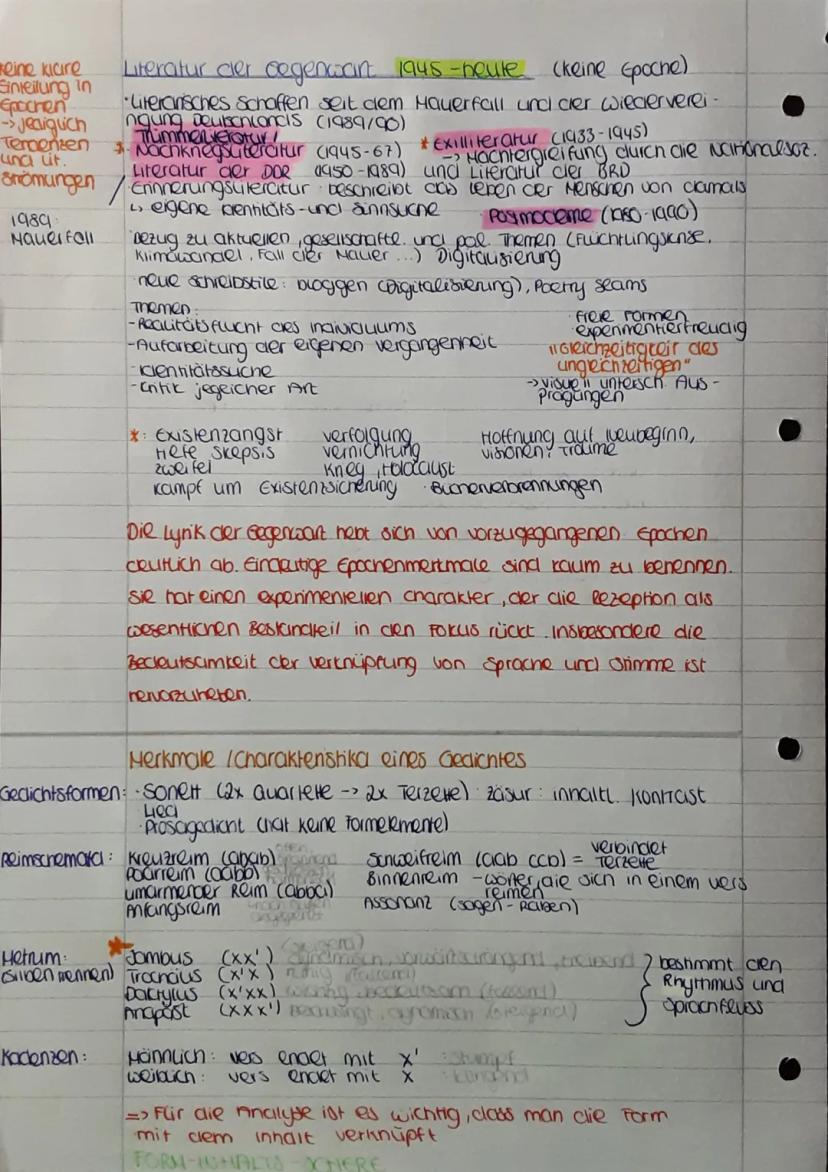 Literatur der Gegenwart 1945-heute (keine Epoche)
keine klare
Einteilung in
Epochen
-> lediglich
Tendenzen
und lit.
Strömungen
1989:
Mauerfall
· Literarisches Schaffen seit dem Mauerfall und der Wiederverei-
nigung Deutschlands (1989/90)
Trümmerliteratur /
* Nachkriegsliteratur (1945-67)
* Exilliteratur (1933-1945)
-> Machtergreifung durch die Nationalsoz.
Literatur der DDR (1950-1989) und Literatur der BRD
/ Erinnerungsliteratur: beschreibt das Leben der Menschen von damals
↳ eigene Identitäts- und Sinnsuche
Postmoderne (1980-1990)
· Bezug zu aktuellen, gesellschaftl. und pol. Themen (Flüchtlingskrise,
Klimawandel, Fall der Mauer ...) Digitalisierung
· neue Schreibstile: bloggen (Digitalisierung), Poetry Slams
Themen:
- Realitätsflucht des Individuums
- Aufarbeitung der eigenen Vergangenheit
- Identitätssuche
- Critik jeglicher Art
· freie Formen
· experimentierfreudig
"Gleichzeitigkeit des
ungleichzeitigen"
untersch. Aus-
prägungen
*: Existenzangst
tiefe Skepsis
Zweifel
Kampf um Existenzsicherung
Verfolgung
Vernichtung
Krieg, Holocaust
· Bücherverbrennungen
Hoffnung auf Neubeginn,
Visionen, Träume
Die Lyrik der Gegenwart hebt sich von vorzugegangenen Epochen
deutlich ab. Eindeutige Epochenmerkmale sind kaum zu benennen.
Sie hat einen experimentellen Charakter, der die Rezeption als
wesentlichen Bestandteil in den Fokus rückt. Insbesondere die
Bedeutsamkeit der Verknüpfung von Sprache und Stimme ist
hervorzuheben.
Merkmale / Charakteristika eines Gedichtes
Gedichtsformen: · Sonett (2x Quartette -> 2x Terzette) · Zäsur: inhaltl. Kontrast
· Lied
· Prosagedicht (hat keine Formelemente)
Reimschemata: Kreuzreim (abab)
Paarreim (aabb)
umarmender Reim (abba)
Anfangsreim
Schweifreim (aab ccb) = verbindet
Terzette
Binnenreim - Wörter, die sich in einem Vers
reimen
Assonanz (sagen - Raben)
Metrum:
(Silben trennen)
* Jambus (xx') (steigend) dynamisch, vorwärtsdrängend, treibend
Trochäus (x'x) ruhig (fallend)
Daktylus (x'xx) wichtig, bedeutsam (fallend)
Anapäst (xxx') dynamisch (steigend)
} bestimmt den
Rhythmus und
Sprachfluss
Kadenzen: Männlich: Vers endet mit x' : stumpf
weiblich: Vers endet mit x : klingend
=> Für die Analyse ist es wichtig, dass man die Form
mit dem Inhalt verknüpft
FORM-INHALTS-SCHERE